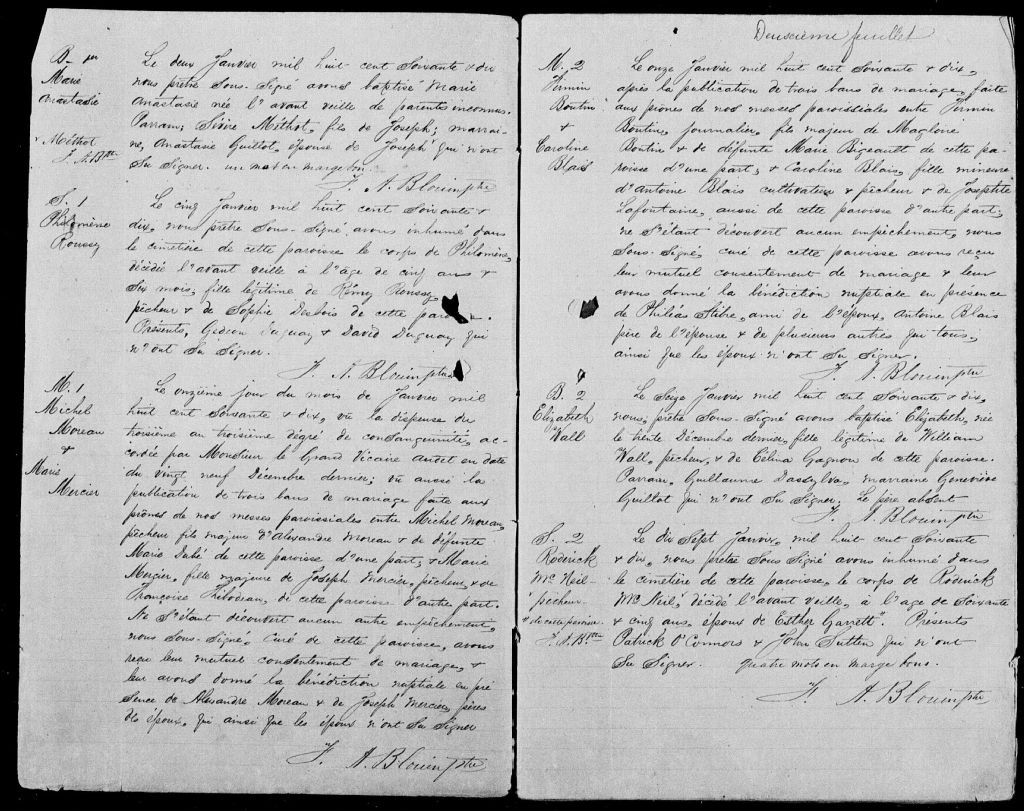 B_1er
Marie
Anastasie
+ Méthot
F. A. B. Ptre
Le deux Janvier mil huit cent soixante & dix
nous prêtre Sous-Signé avons baptisé Marie
Anastasie née l'avant veille de parents inconnus.
Parrain; Sévère Méthot, fils de Joseph; marrai-
ne, Anastasie Guillot, épouse de Joseph qui n'ont
Su Signer. un mot en marge bon.
F. A. Blouin ptre
S. 1
Philomène
Roussy
Le cinq Janvier mil huit cent Soixante &
dix, nous prêtre Sous-Signé avons inhumé dans
le cimetière de cette paroisse le corps de Philomène,
décédée l'avant veille à l'âge de cinq ans &
Six mois, fille légitime de Rémy Roussy
pêcheur & de Sophie Desbois de cette
Présents, Gedeon Duguay & David Duguay qui
n'ont Su Signer.
F. A. Blouin ptre
M. 1
Michel
Moreau
&
Marie
Mercier
Le onzième jour du mois de Janvier mil
huit cent Soixante & dix, vu la dispense du
troisième au troisième dégré de consanguinité, ac-
cordée par Monsieur le Grand Vicaire en date
du vingt neuf Décembre dernier; vu aussi la
publication de trois bans de mariage faite aux
prônes de nos messes paroissiales entre Michel Moreau,
pêcheur fils majeur d'Alexandre Moreau & de défunte
Marie Dubé de cette paroisse d'une part, & Marie
Mercier, fille majeure de Joseph Mercier, pêcheur, & de
Françoise Thibodeau, de cette paroisse d'autre part.
Ne S'étant découvert aucun autre empêchement,
nous Sous-Signé, Curé de cette paroisse, avons
reçu leur mutuel consentement de mariage, &
leur avons donné la bénédiction nuptiale en pré
Sence de Alexandre Moreau & de Joseph Mercier, pères
des époux, qui ainsi que les époux n'ont Su Signer
F. A. Blouin ptre
Deuxième feuillet
M. 2
Firmin
Boutin
&
Caroline
Blais
Le onze Janvier mil huit cent Soixante & dix,
après la publication de trois bans de mariage, faite
aux prônes de nos messes paroissiales entre Firmin
Boutin, journalier, fils majeur de Magloire
Boutin & de défunte Marie Bigeault de cette pa-
roisse d'une part; & Caroline Blais, fille mineure
d'Antoine Blais cultivateur & pêcheur & de Josephte
Lafontaine, aussi de cette paroisse d'autre part;
ne S'étant découvert aucun empêchement, nous
Sous-Signé, curé de cette paroisse avons reçu
leur mutuel consentement de mariage & leur
avons donné la bénédiction nuptiale en présence
de Philéas ami de l'époux, Antoine Blais
père de l'épouse & de plusieurs autres qui tous,
ainsi que les époux n'ont Su Signer.
F. A. Blouin ptre
B. 2
Elizabeth
Wall
Le Seize Janvier mil huit cent Soixante & dix,
nous, prêtre Sous-Signé avons baptisé Elizabeth, née
le trente Décembre dernier, fille légitime de William
Wall, pêcheur, & de Célina Gagnon de cette paroisse.
Parrain, Guillaume Dassylva, marraine Geneviève
Guillot qui n'ont Su Signer. Le père absent
F. A. Blouin ptre
S. 2
Roderick
Mc Neil
pêcheur
+ de cette paroisse
F. A. B. Ptre
Le dix Sept Janvier, mil huit cent Soixante
& dix, nous prêtre Sous Signé avons inhumé dans
le cimetière de cette paroisse, le corps de Roderick
Mc Neil, décédé l'avant veille, à l'âge de Soixante
& cinq ans, époux de Esther Garrett. Présents
Patrick O'Connors & John Sutten qui n'ont
Su Signer. quatre mots en marge bons.
F. A. Blouin ptre